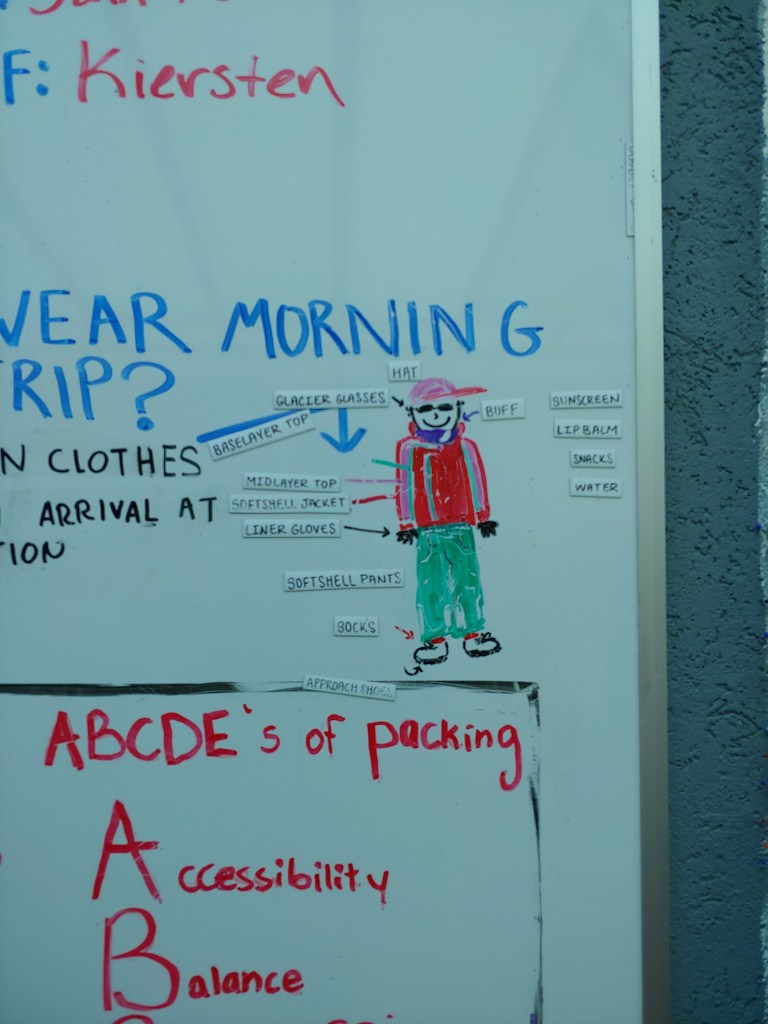 F: Kiersten
WEAR MORNING
TRIP?
HAT
GLACIER GLASSES
BUFF
SUNSCREEN
BASELAYER TOP
LIP BALM
N CLOTHES
SNACKS
MIDLAYER TOP
WATER
SOFTSHELL JACKET
ARRIVAL AT
LINER GLOVES
TION
SOFTSHELL PANTS
SOCKS
APPROACH SHOES
ABCDE's of packing
Accessibility
Balance